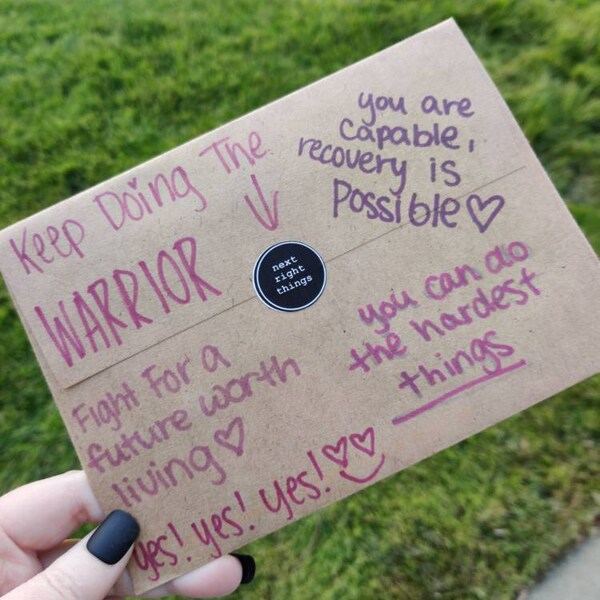 Keep Doing The
next
right
things
WARRIOR
you are
capable,
recovery is
Possible
Fight For a
future worth
living
you can do
the hardest
things
yes! yes! yes!